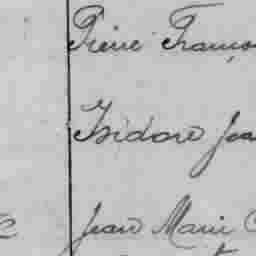 Pierre Franço
Isidore Jea
Jean Marie